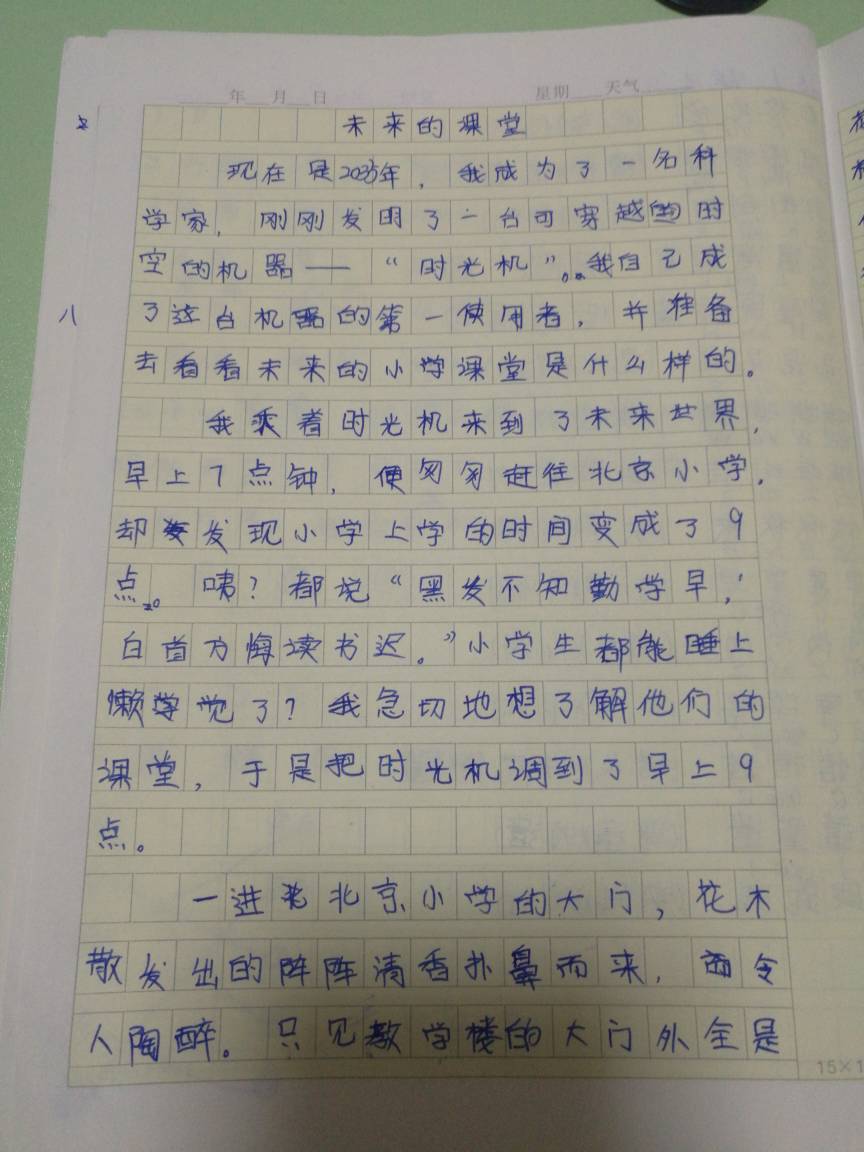 年 月 日 星期 天气
未来的课堂
现在是2035年，我成为了一名科
学家，刚刚发明了一台可穿越的时
空的机器——“时光机”。我自己成
八
了这台机器的第一使用者，并准备
去看看未来的小学课堂是什么样的。
我乘着时光机来到了未来世界，
早上7点钟，便匆匆赶往北京小学，
却发现小学上学的时间变成了9
点。咦？都说“黑发不知勤学早，
白首方悔读书迟。”小学生都能睡上
懒觉了？我急切地想了解他们的
课堂，于是把时光机调到了早上9
点。
一进北京小学的大门，花木
散发出的阵阵清香扑鼻而来，令
人陶醉。只见教学楼的大门外全是